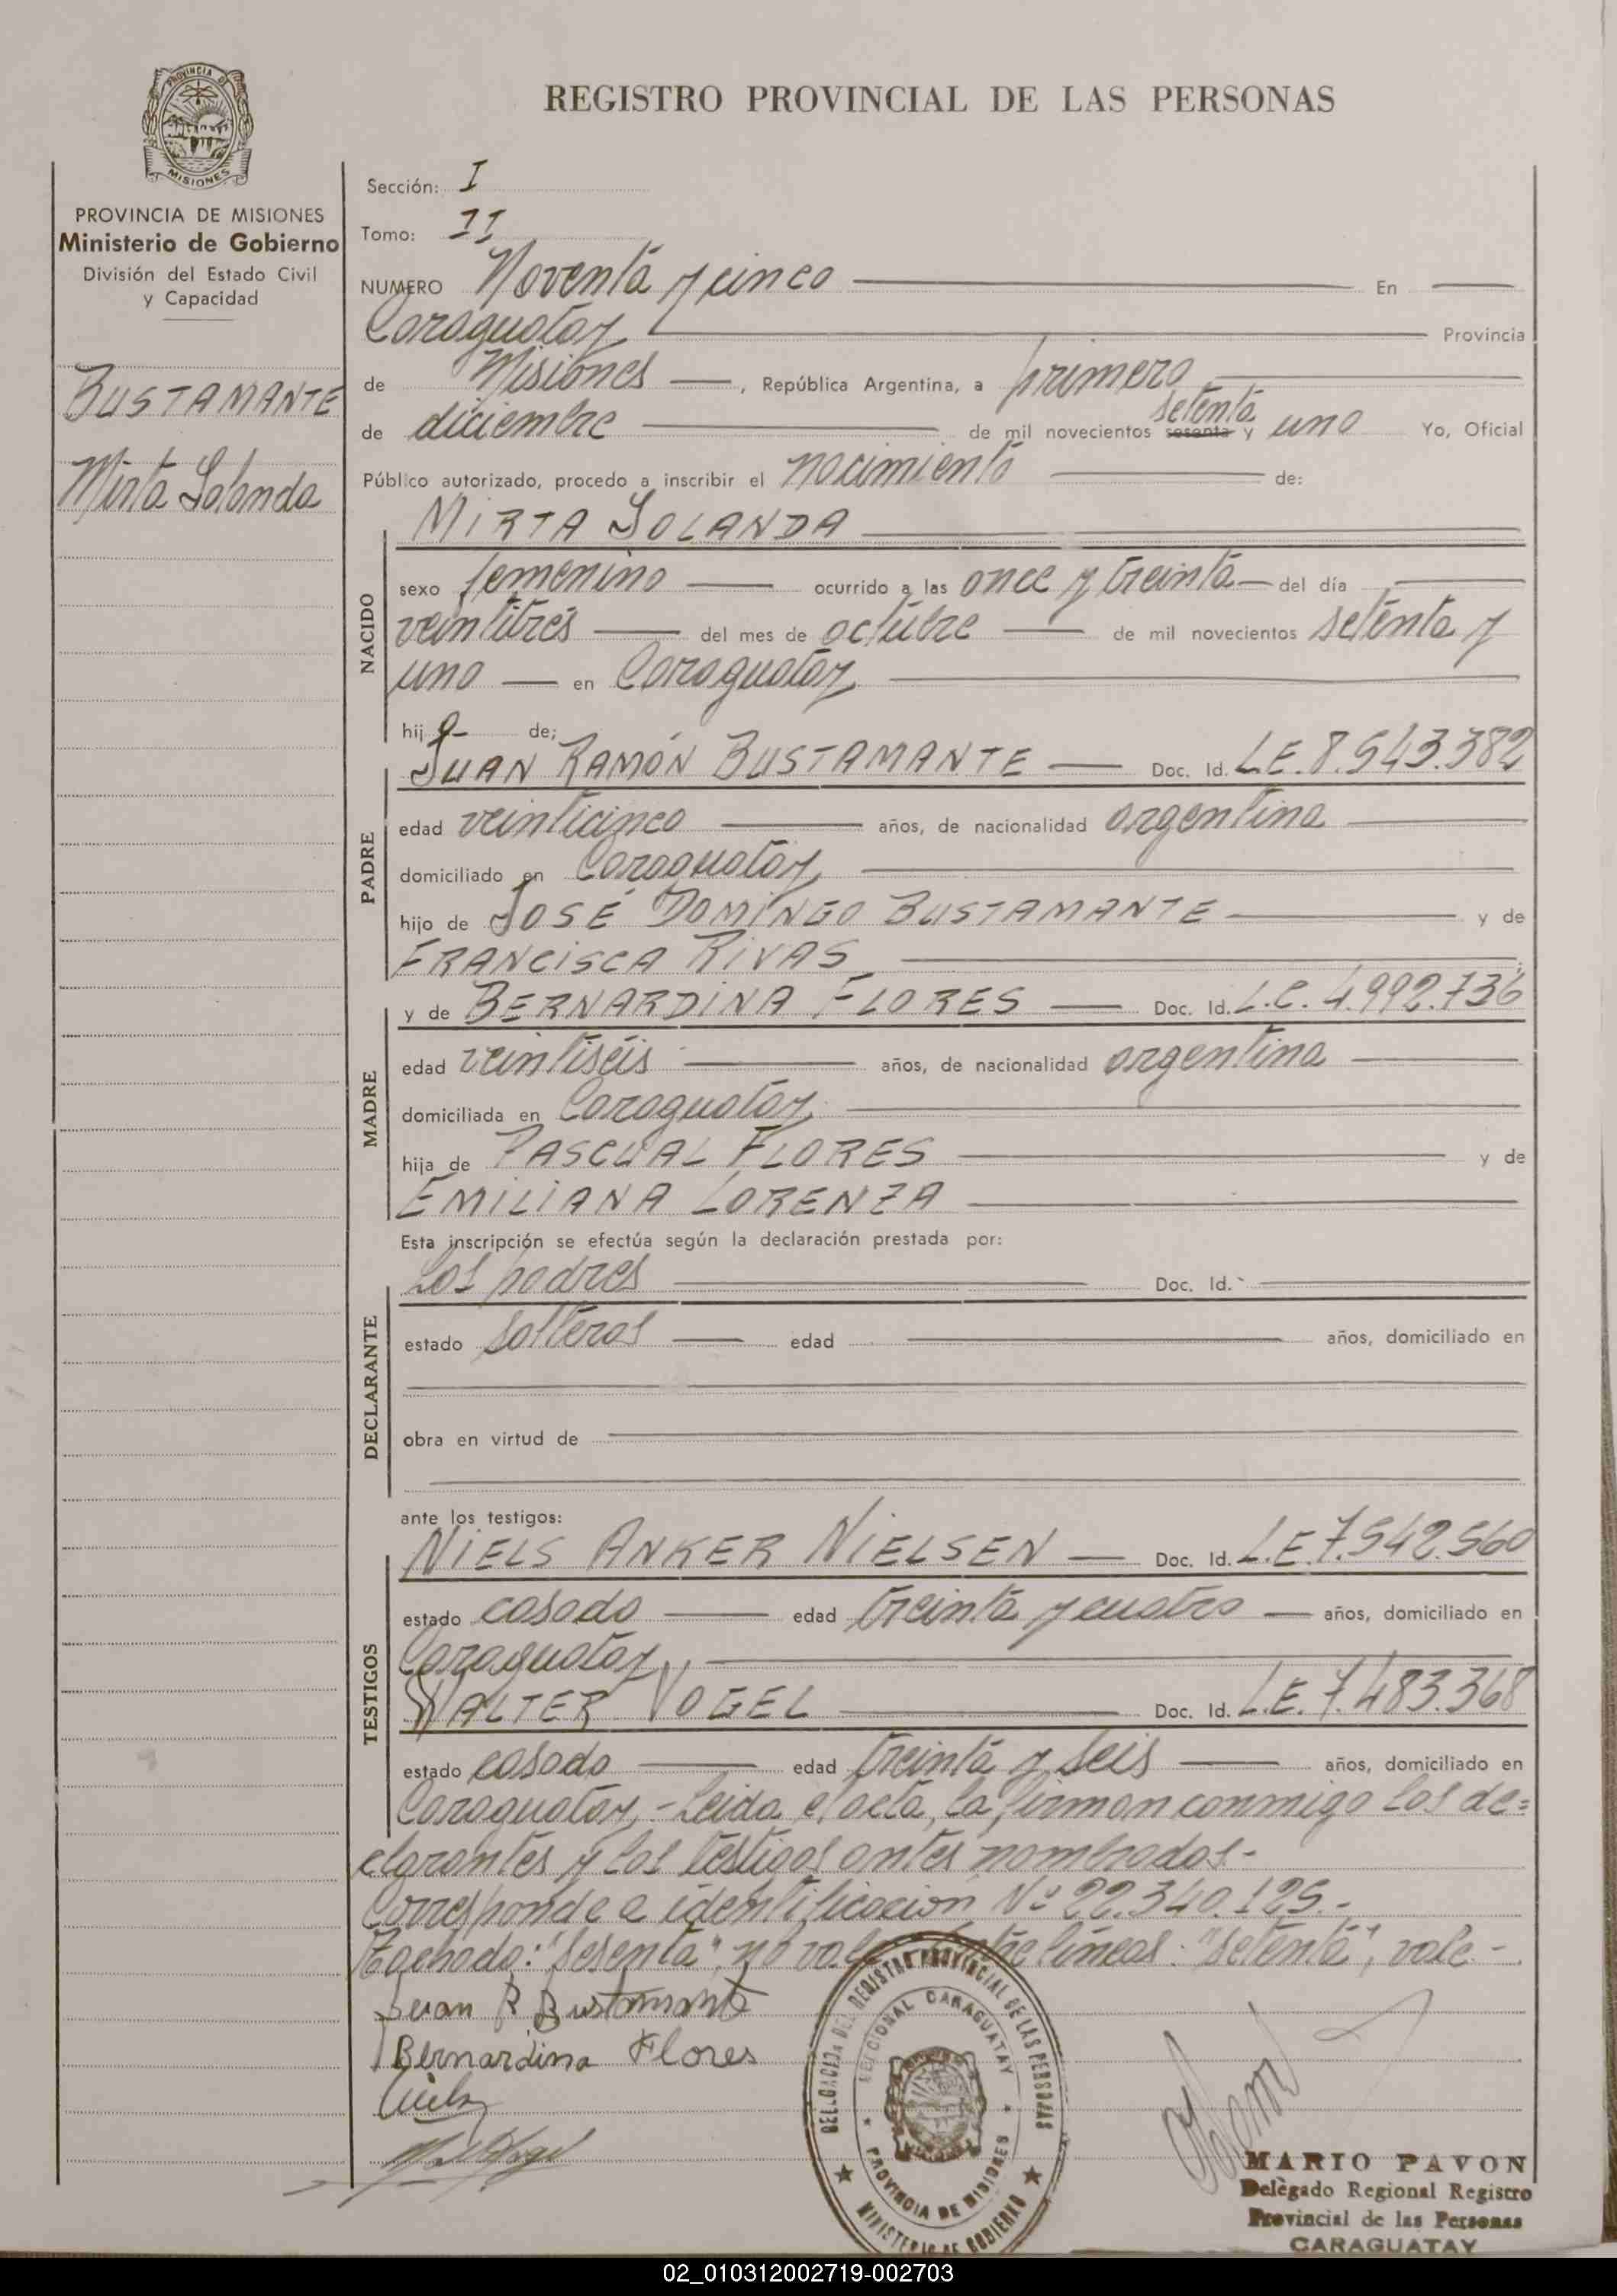 PROVINCIA DE
MISIONES
REGISTRO PROVINCIAL DE LAS PERSONAS
PROVINCIA DE MISIONES
Ministerio de Gobierno
División del Estado Civil
y Capacidad
BUSTAMANTE
Mirta Iolanda
Sección: I
Tomo: II
NUMERO Noventa y cinco En
Caraguatay Provincia
de Misiones, República Argentina, a primero
setenta
de diciembre de mil novecientos sesenta y uno Yo, Oficial
Público autorizado, procedo a inscribir el nacimiento de:
MIRTA IOLANDA
NACIDO
sexo femenino ocurrido a las once y treinta del día
veintitrés del mes de octubre de mil novecientos setenta y
uno en Caraguatay
hija de;
PADRE
JUAN RAMÓN BUSTAMANTE Doc. Id. L.E. 8.543.382
edad veinticinco años, de nacionalidad argentina
domiciliado en Caraguatay
hijo de JOSÉ DOMINGO BUSTAMANTE y de
FRANCISCA RIVAS
MADRE
y de BERNARDINA FLORES Doc. Id. L.C. 4.992.736
edad veintiséis años, de nacionalidad argentina
domiciliada en Caraguatay
hija de PASCUAL FLORES y de
EMILIANA LORENZA
Esta inscripción se efectúa según la declaración prestada por:
DECLARANTE
Los padres Doc. Id.
estado solteros edad años, domiciliado en
obra en virtud de
ante los testigos:
TESTIGOS
NIELS ANKER NIELSEN Doc. Id. L.E. 7.542.560
estado casado edad treinta y cuatro años, domiciliado en
Caraguatay
WALTER VOGEL Doc. Id. L.E. 7.483.368
estado casado edad treinta y seis años, domiciliado en
Caraguatay.- Leida el acta, la firman conmigo los de=
clarantes y los testigos antes nombrados.-
Corresponde a identificacion Nº 22.340.125.-
Tachado: "sesenta", no vale. Entre líneas: "setenta", vale.-
Juan R Bustamante
Bernardina Flores
DELEGACION DEL REGISTRO PROVINCIAL DE LAS PERSONAS
SECCIONAL CARAGUATAY
PROVINCIA DE MISIONES
MINISTERIO DE GOBIERNO
MARIO PAVON
Delegado Regional Registro
Provincial de las Personas
CARAGUATAY
02_010312002719-002703